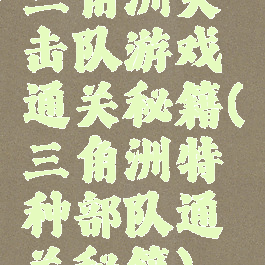 三角洲突
击队游戏
通关秘籍(
三角洲特
种部队通
关秘籍)